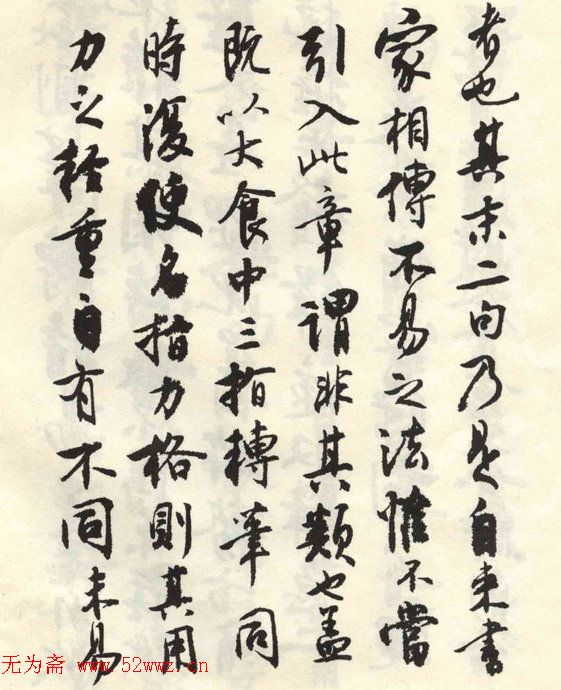 者也其末二句乃是自来書
家相傳不易之法惟不當
引入此章謂非其類也盖
既以大食中三指摶筆同
時復使名指力格則其用
力之輕重自有不同未易
无为斋 www.52wwz.cn